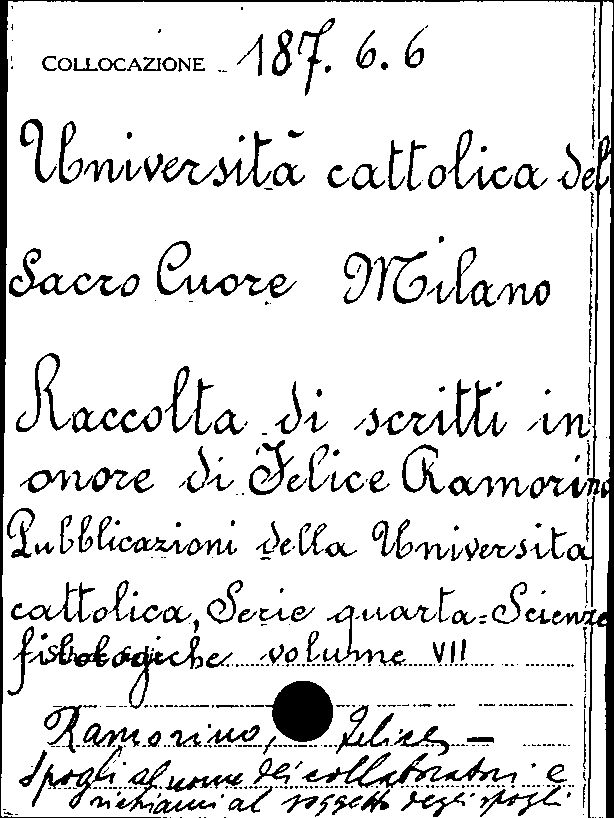 COLLOCAZIONE 187. 6. 6
Università cattolica del
Sacro Cuore Milano
Raccolta di scritti in
onore di Felice Ramorino
Pubblicazioni della Universita
cattolica, Serie quarta = Scienze
filologiche volume VII
Ramorino, Felice, —
Spogli al nome dei collaboratori e
richiami al soggetto degli spogli